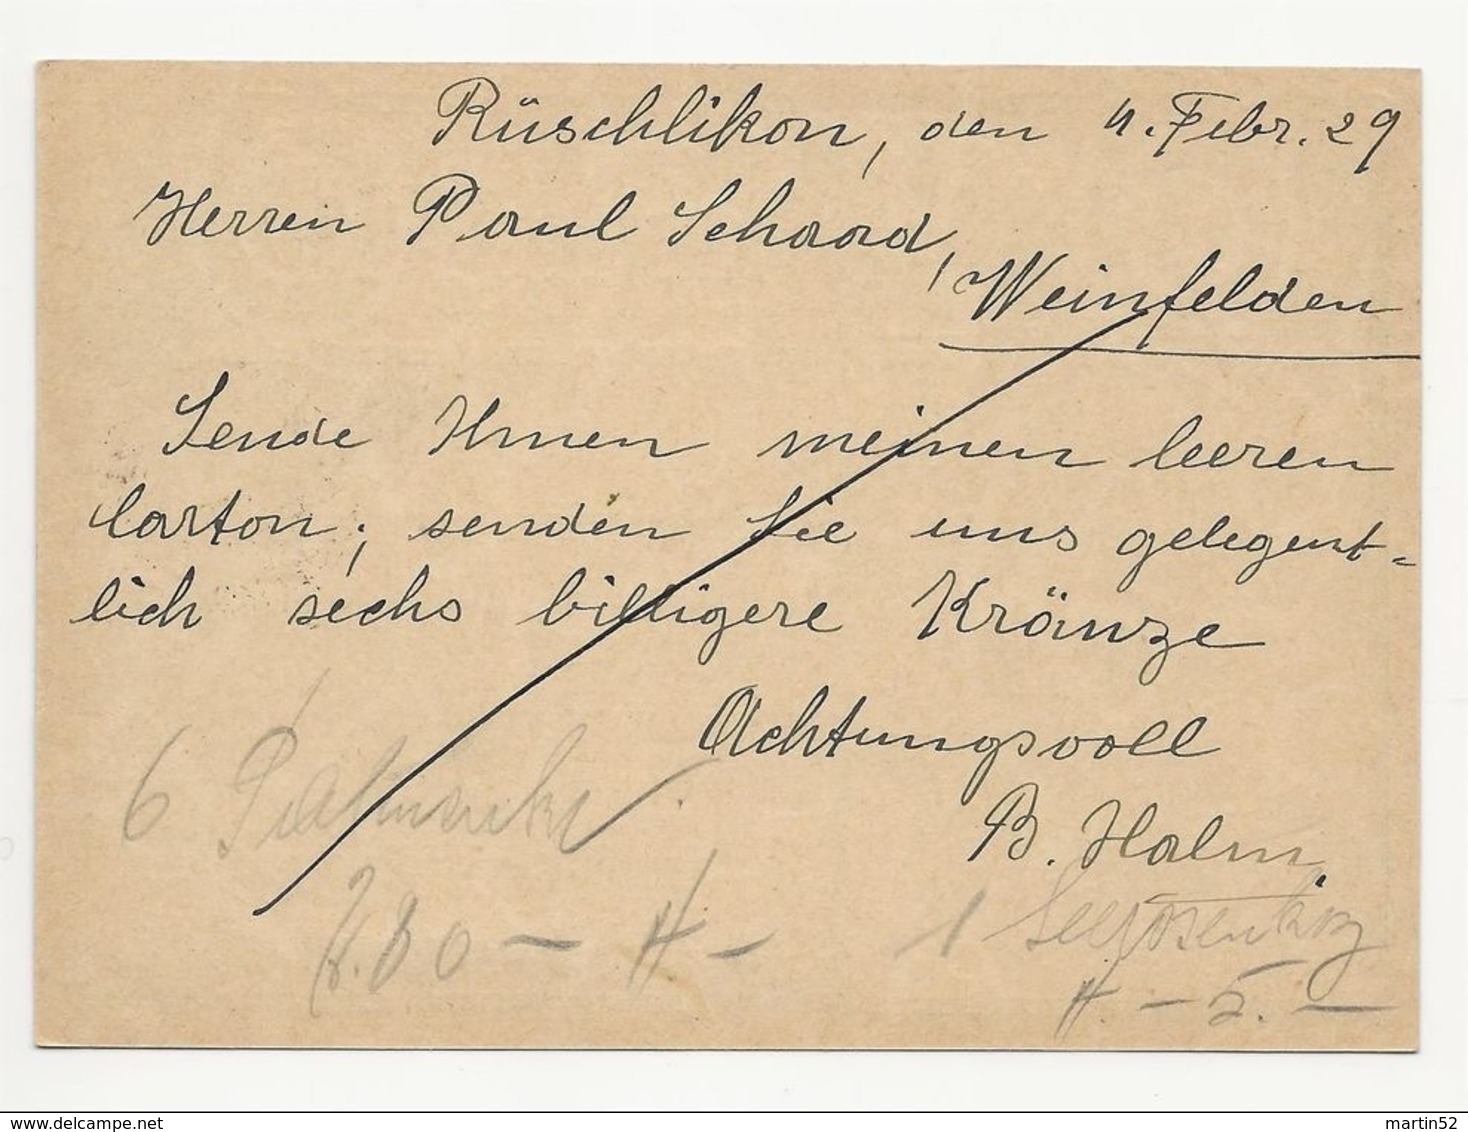 Rüschlikon, den 4. Febr. 29
Herren Paul Schaad,
Weinfelden
Sende Ihnen meinen leeren
Carton; senden Sie uns gelegent-
lich sechs billigere Kränze
Achtungsvoll
B. Halm.
6
80 –
1
– 5. –
delcampe.net
martin52